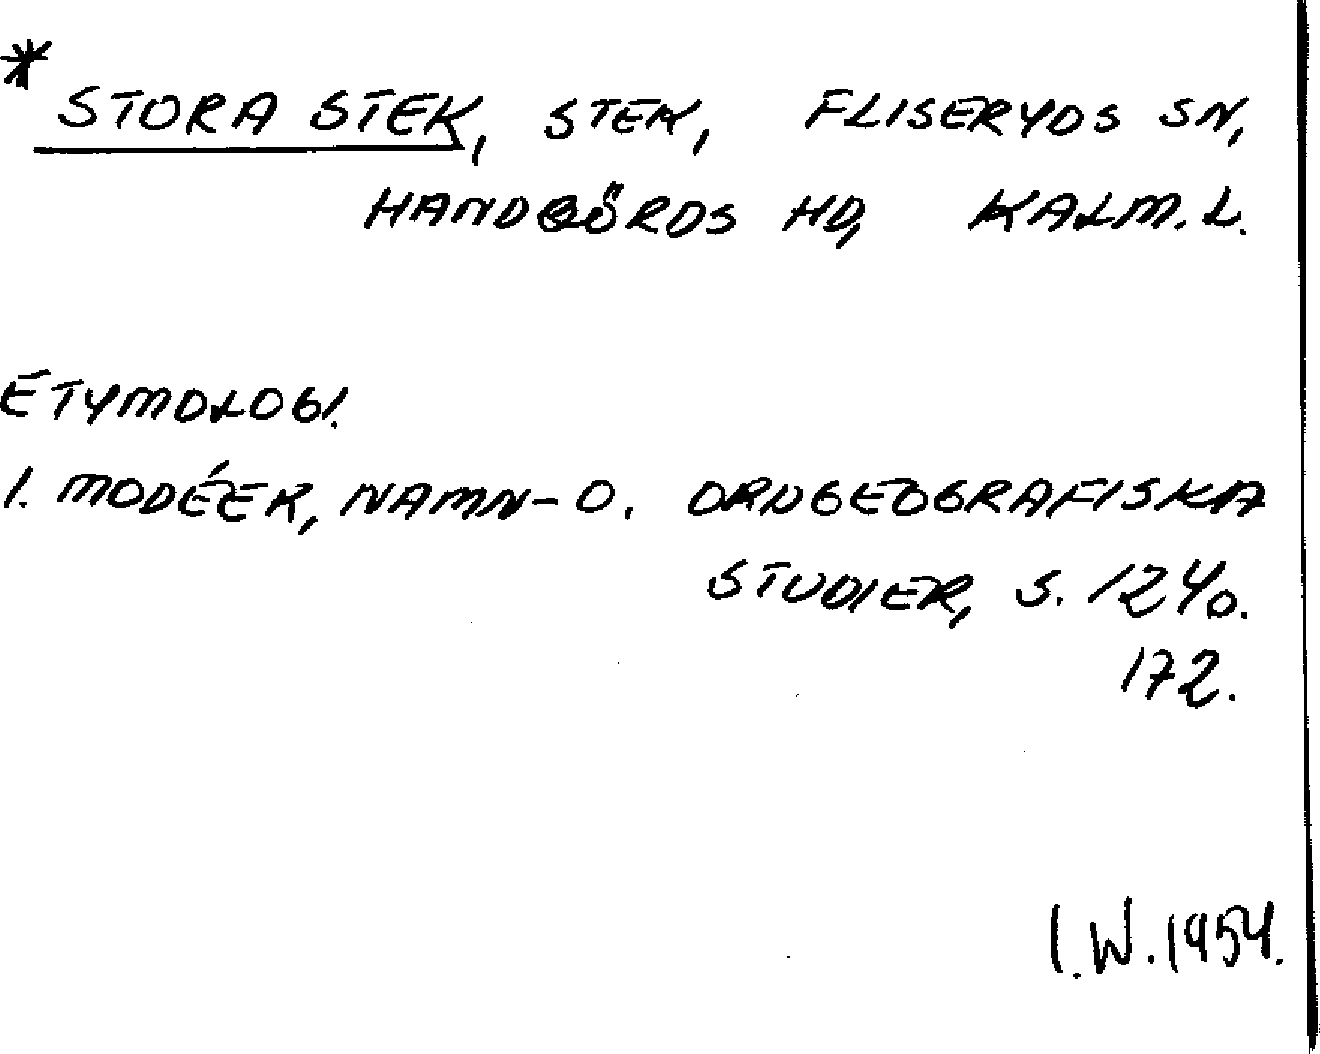 * STORA STEK, STEK, FLISERYDS SN,
HANDBÖRDS HD, KALM. L.
ETYMOLOGI.
I. MODÉER, NAMN- O. ORDGEOGRAFISKA
STUDIER, S. 124 O.
172.
I.W. 1954.